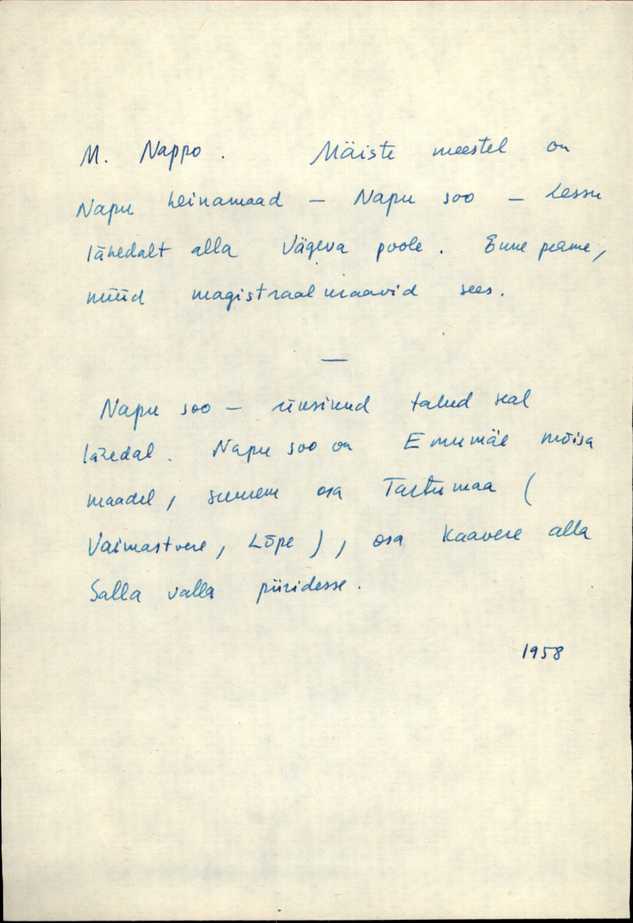 M. Nappo. Mäiste meestel on
Napu heinamaad – Napu soo – Lessu
lähedalt alla Vägeva poole. Enne peame,
nüüd magistraalkraavid sees.
—
Napu soo – üksikud talud seal
lähedal. Napu soo on Emumäe mõisa
maadel, suurem osa Tartumaa (
Vaimastvere, Lõpe), osa Kaavere alla
Salla valla piiridesse.
1958